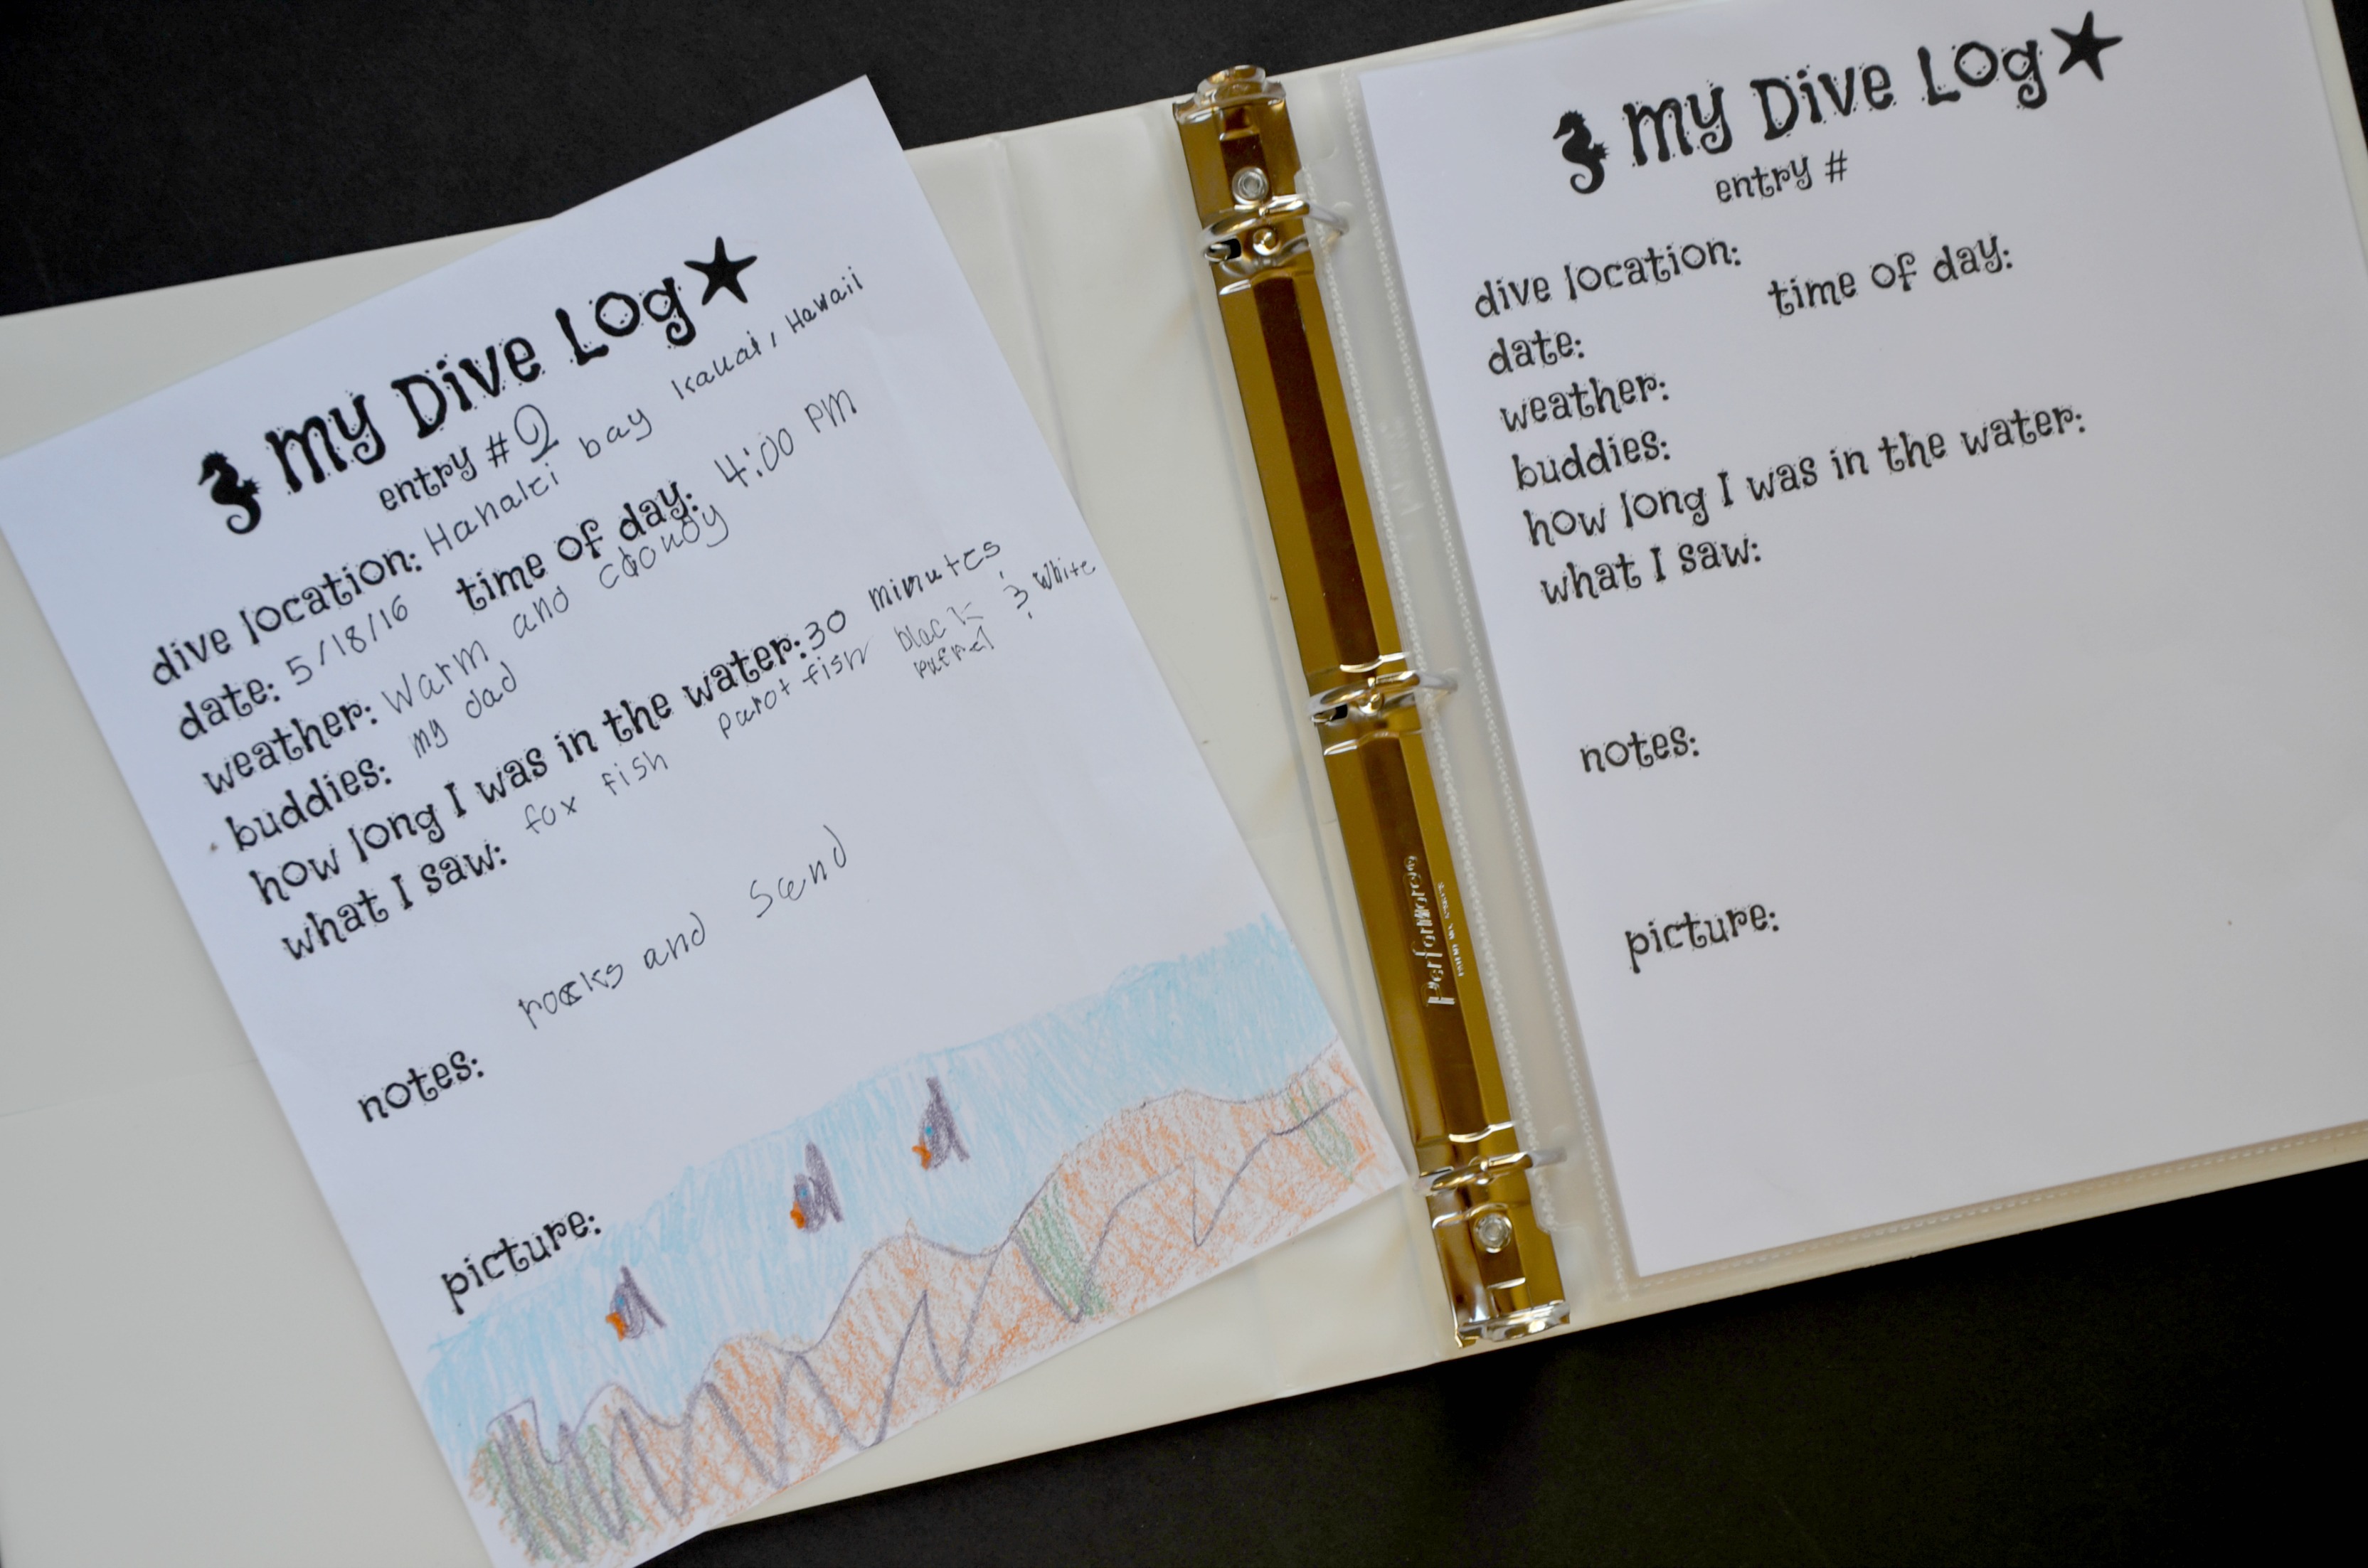 my Dive Log
entry # 2
dive location: Hanalei bay Kauai, Hawaii
date: 5/18/16 time of day: 4:00 PM
weather: Warm and cloudy
buddies: my dad
how long I was in the water: 30 minutes
what I saw: fox fish parot fish black & white
rocks and sand
notes:
picture:
PerforMore
my Dive Log
entry #
dive location:
date: time of day:
weather:
buddies:
how long I was in the water:
what I saw:
notes:
picture: